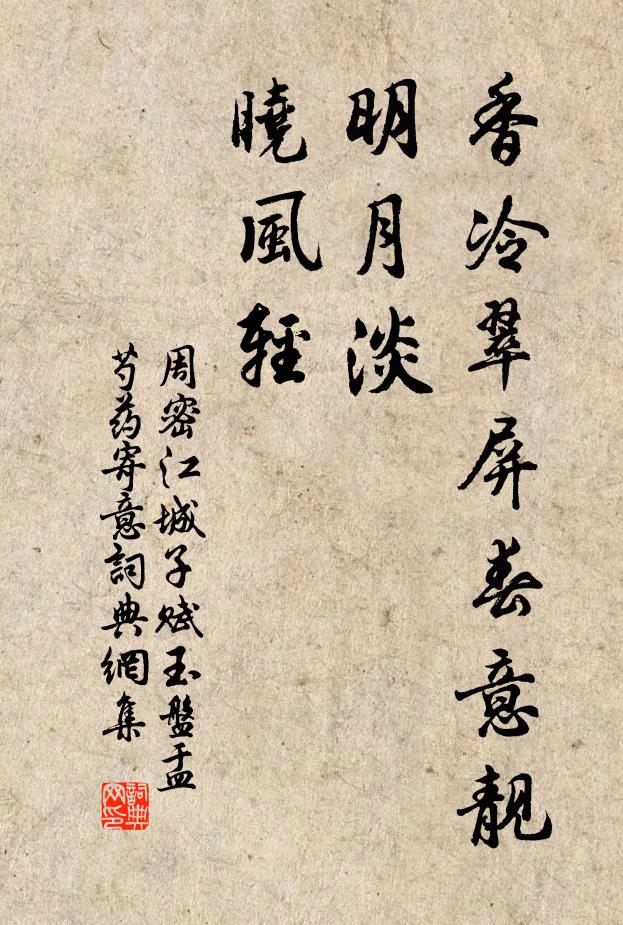 香冷翠屏春意靚
明月淡
曉風輕
周密江城子赋玉盤盂
芍药寄意詞典網集
詞典网印